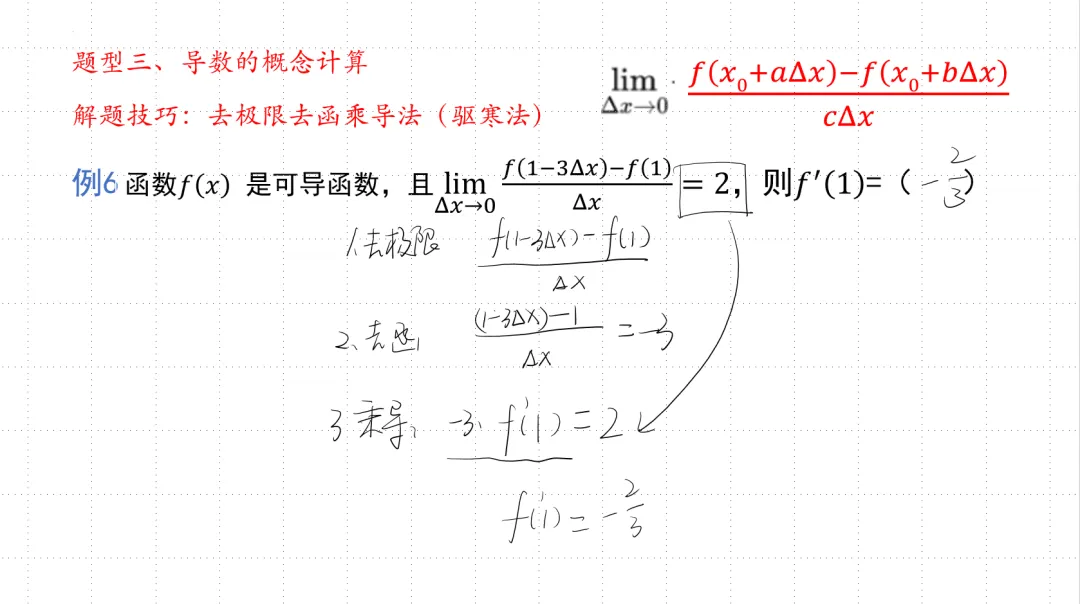 题型三、导数的概念计算
解题技巧：去极限去函乘导法（驱寒法）
lim Δx→0 f(x₀+aΔx)−f(x₀+bΔx) / cΔx
例6 函数f(x) 是可导函数，且 lim Δx→0 f(1−3Δx)−f(1) / Δx =2，则f′(1)=（ -2/3 ）
1.去极限 f(1-3Δx)-f(1) / Δx
2、去函 (1-3Δx)-1 / Δx =-3
3 乘导: -3·f'(1)=2
f'(1)=-2/3